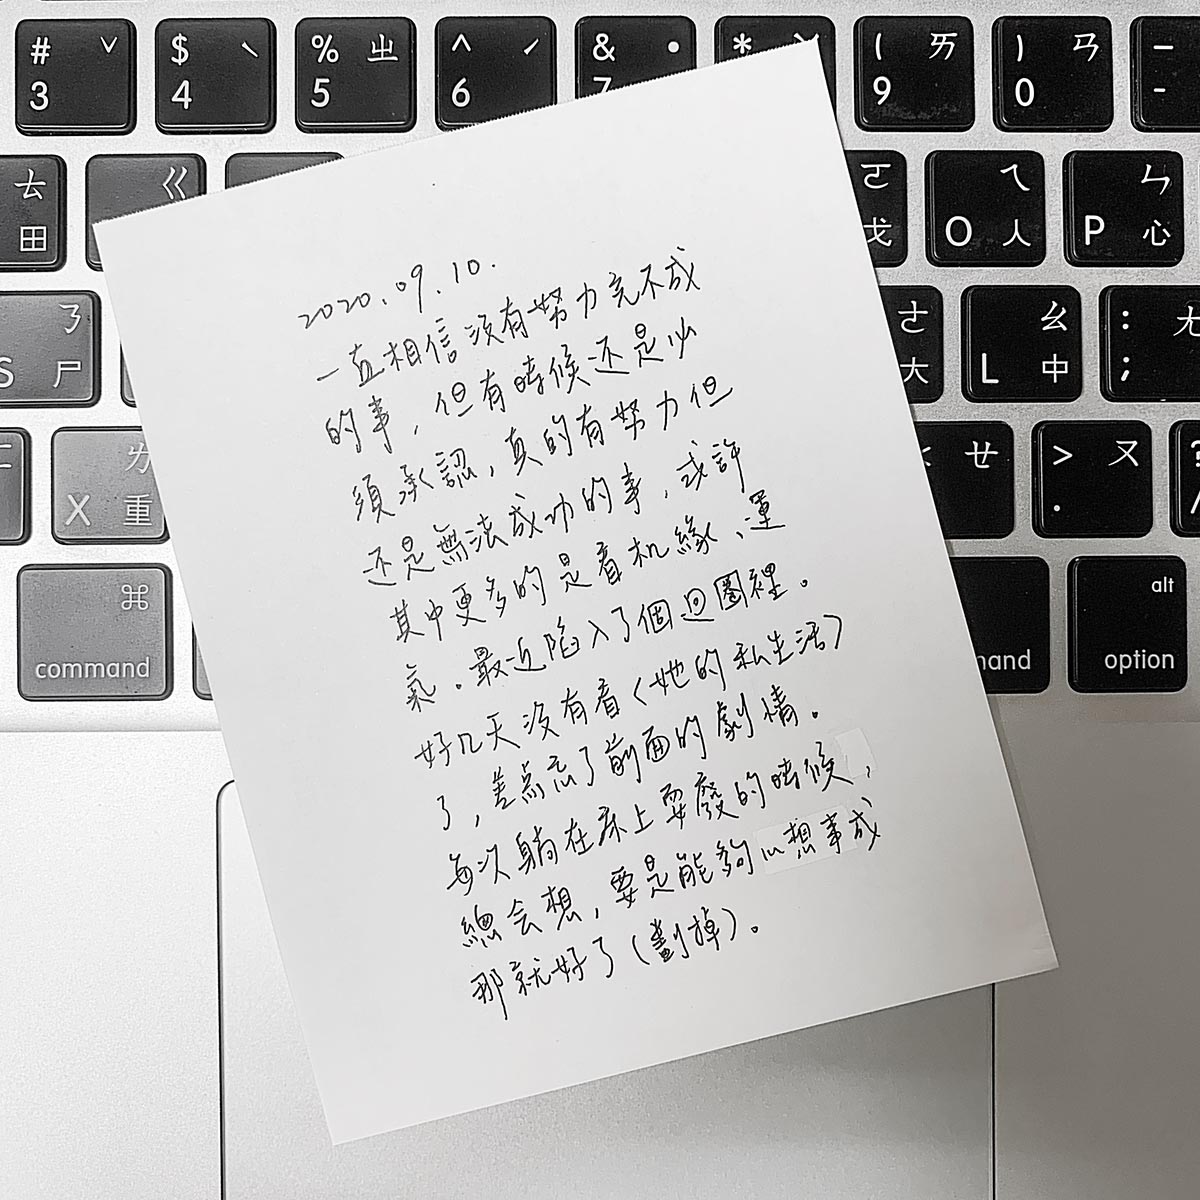 # ˇ $ ˋ % ㄓ ^ ˊ & ˙ * ( ㄞ ) ㄢ —
3 4 5 6 7 9 0 -
ㄊ ㄍ ㄛ ㄟ ㄣ
田 戈 O 人 P 心
ㄋ ㄜ ㄠ : ㄤ
S 尸 大 L 中 ;
ㄌ ㄝ > ㄡ ?
X 重 . /
⌘ alt
command mand option
2020.09.10.
一直相信沒有努力完不成
的事，但有時候还是必
須承認，真的有努力但
还是無法成功的事，或許
其中更多的是看机緣、運
氣。最近陷入了個迴圈裡。
好几天沒有看〈她的私生活〉
了，差点忘了前面的劇情。
每次躺在床上耍廢的時候，
總会想，要是能夠心想事成
那就好了（劃掉）。